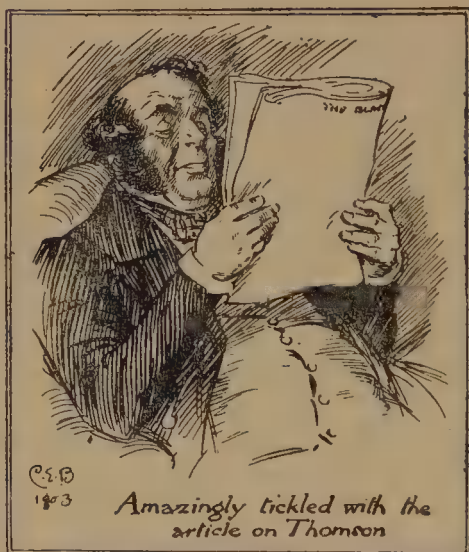 THE
C.E.B
1903
Amazingly tickled with the
article on Thomson